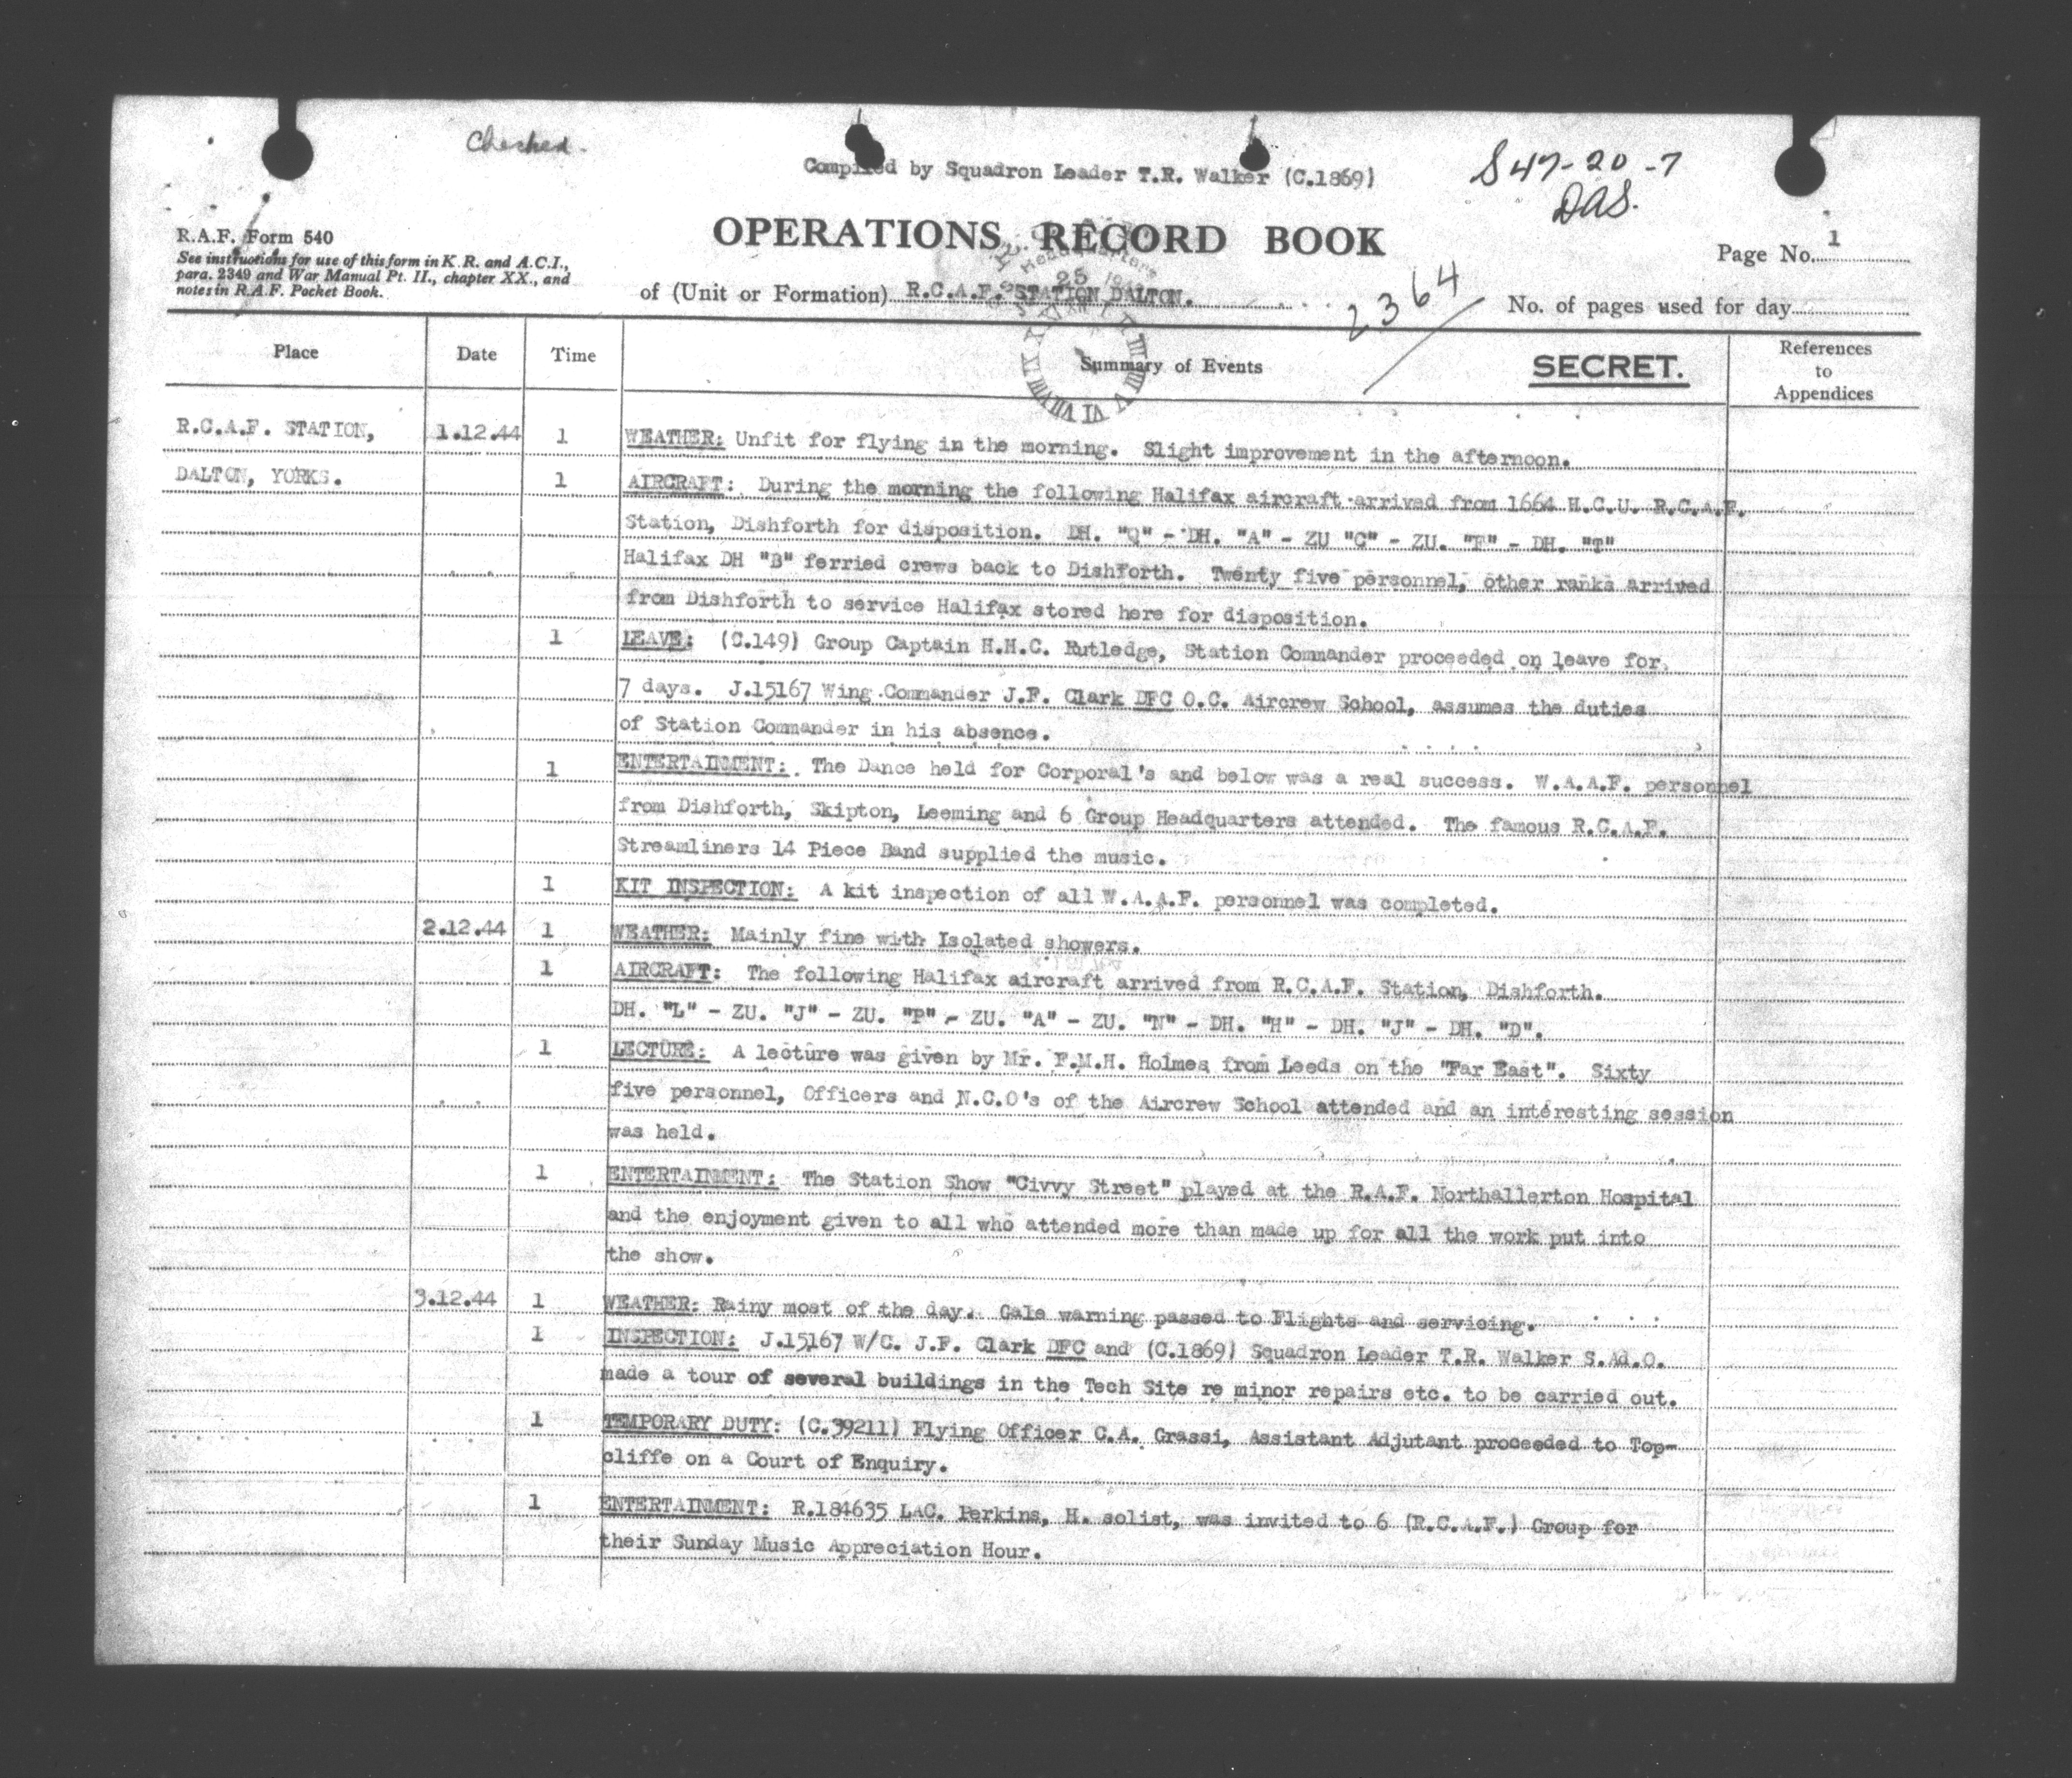 Checked.
Compiled by Squadron Leader T.R. Walker (C.1869)
S47-20-7
DAS.
R.A.F. Form 540
See instructions for use of this form in K.R. and A.C.I.,
para. 2349 and War Manual Pt. II., chapter XX., and
notes in R.A.F. Pocket Book.
OPERATIONS RECORD BOOK
Page No. 1
of (Unit or Formation) R.C.A.F. STATION DALTON.
2364
No. of pages used for day
Headquarters
25
Place Date Time Summary of Events SECRET. References to Appendices
R.C.A.F. STATION, 1.12.44 1 WEATHER: Unfit for flying in the morning. Slight improvement in the afternoon.
DALTON, YORKS. 1 AIRCRAFT: During the morning the following Halifax aircraft arrived from 1664 H.C.U. R.C.A.F.
Station, Dishforth for disposition. DH. "Q" - DH. "A" - ZU "C" - ZU. "F" - DH. "T"
Halifax DH "B" ferried crews back to Dishforth. Twenty five personnel, other ranks arrived
from Dishforth to service Halifax stored here for disposition.
1 LEAVE: (C.149) Group Captain H.H.C. Rutledge, Station Commander proceeded on leave for
7 days. J.15167 Wing Commander J.F. Clark DFC O.C. Aircrew School, assumes the duties
of Station Commander in his absence.
1 ENTERTAINMENT: The Dance held for Corporal's and below was a real success. W.A.A.F. personnel
from Dishforth, Skipton, Leeming and 6 Group Headquarters attended. The famous R.C.A.F.
Streamliners 14 Piece Band supplied the music.
1 KIT INSPECTION: A kit inspection of all W.A.A.F. personnel was completed.
2.12.44 1 WEATHER: Mainly fine with Isolated showers.
1 AIRCRAFT: The following Halifax aircraft arrived from R.C.A.F. Station, Dishforth.
DH. "L" - ZU. "J" - ZU. "P" - ZU. "A" - ZU. "N" - DH. "H" - DH. "J" - DH. "D".
1 LECTURE: A lecture was given by Mr. F.M.H. Holmes from Leeds on the "Far East". Sixty
five personnel, Officers and N.C.O's of the Aircrew School attended and an interesting session
was held.
1 ENTERTAINMENT: The Station Show "Civvy Street" played at the R.A.F. Northallerton Hospital
and the enjoyment given to all who attended more than made up for all the work put into
the show.
3.12.44 1 WEATHER: Rainy most of the day. Gale warning passed to Flights and servicing.
1 INSPECTION: J.15167 W/C. J.F. Clark DFC and (C.1869) Squadron Leader T.R. Walker S.Ad.O.
made a tour of several buildings in the Tech Site re minor repairs etc. to be carried out.
1 TEMPORARY DUTY: (C.39211) Flying Officer C.A. Grassi, Assistant Adjutant proceeded to Top-
cliffe on a Court of Enquiry.
1 ENTERTAINMENT: R.184635 LAC. Perkins, H. solist, was invited to 6 (R.C.A.F.) Group for
their Sunday Music Appreciation Hour.